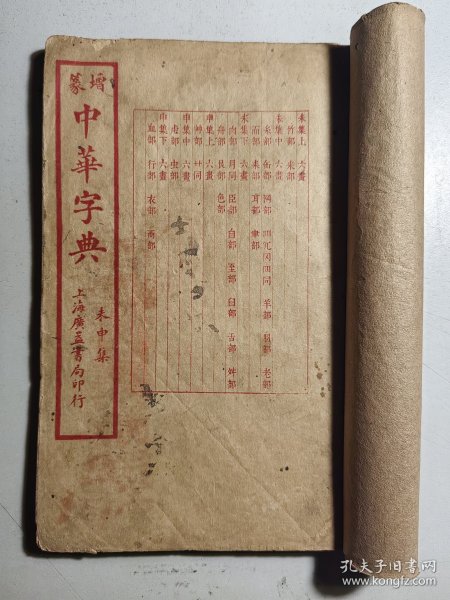 增篆
中華字典
未申集
上海廣益書局印行
未集上 六畫
竹部 米部
未集中 六畫
糸部 缶部 网部 羊部 羽部 老部
而部 耒部 耳部 聿部
未集下 六畫
肉部 月同 臣部 自部 至部 臼部 舌部 舛部
舟部 艮部 色部
申集上 六畫
艸部 艹同
申集中 六畫
虍部 虫部
申集下 六畫
血部 行部 衣部 襾部
孔夫子旧书网
www.kongfz.com